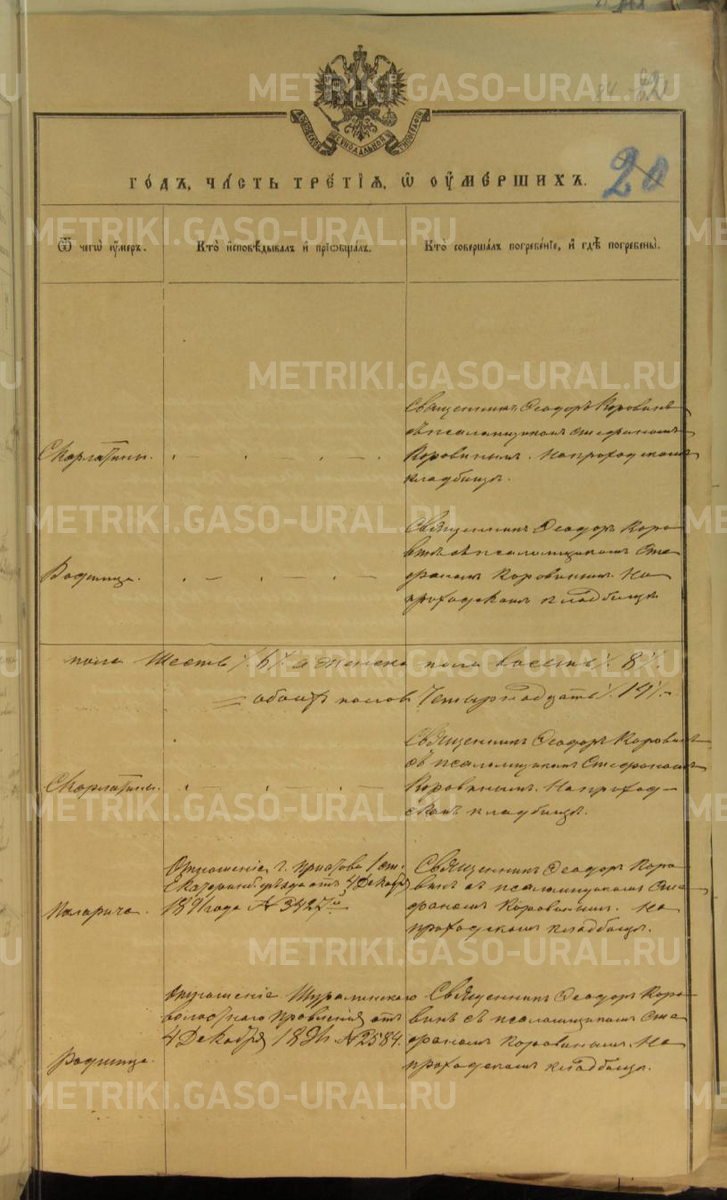 20
годъ, часть третїѧ, ѡ оумершихъ.
Ѿ чегѡ оумеръ.
Кто исповѣдывалъ и прїѡбщалъ.
Кто совершалъ погребенїе, и гдѣ погребены.
Священникъ Ѳеодоръ Коровинъ
съ псаломщикомъ Стефаномъ
Скарлатины.
Коровинымъ. На приходскомъ
кладбищѣ.
Священникъ Ѳеодоръ Коро-
винъ съ псаломщикомъ Сте-
Родимца.
фаномъ Коровинымъ. На
приходскомъ кладбищѣ.
пола шесть /. 6 /. а женска пола восемь /. 8 /.
= обоихъ половъ четырнадцать /. 14 /. –
Священникъ Ѳеодоръ Коровинъ
съ псаломщикомъ Стефаномъ
Скарлатины.
Коровинымъ. На приход-
скомъ кладбищѣ.
Отношеніе г. Пристава 1 ст.
Екатеринб. уѣзда отъ 4 Декабря
1891 года № 3427
Священникъ Ѳеодоръ Коро-
винъ съ псаломщикомъ Сте-
фаномъ Коровинымъ. На
приходскомъ кладбищѣ.
Отношеніе Шуралинскаго
волостнаго Правленія отъ
4 Декабря 1891 № 2584.
Священникъ Ѳеодоръ Коро-
винъ съ псаломщикомъ Сте-
фаномъ Коровинымъ. На
Родимца.
приходскомъ кладбищѣ.
METRIKI.GASO-URAL.RU